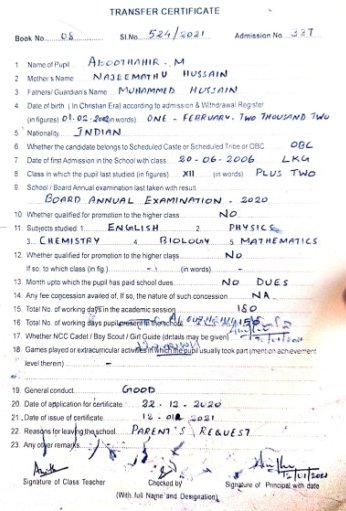 TRANSFER CERTIFICATE
Book No. 08 Sl.No. 524/2021 Admission No 337
1 Name of Pupil ABOOTHAHIR. M
2 Mother's Name NAJEEMATHU HUSSAIN
3 Fathers/Guardian's Name MUHAMMED HUSSAIN
4 Date of birth (In Christian Era) according to admission & Withdrawal Register
(in figures) 01.02.2002 (in words) ONE - FEBRUARY. TWO THOUSAND TWO
5 Nationality INDIAN
6 Whether the candidate belongs to Scheduled Caste or Scheduled Tribe or OBC OBC
7 Date of first Admission in the School with class 20-06-2006 LKG
8 Class in which the pupil last studied (in figures) XII (in words) PLUS TWO
9 School / Board Annual examination last taken with result
BOARD ANNUAL EXAMINATION - 2020
10 Whether qualified for promotion to the higher class NO
11 Subjects studied 1 ENGLISH 2 PHYSICS
3 CHEMISTRY 4 BIOLOGY 5 MATHEMATICS
12 Whether qualified for promotion to the higher class No
If so, to which class (in fig) - (in words) -
13 Month upto which the pupil has paid school dues NO DUES
14 Any fee concession availed of, If so, the nature of such concession NA
15 Total No. of working days in the academic session 180
16 Total No. of working days pupil present in the school
17 Whether NCC Cadet / Boy Scout / Girl Guide (details may be given)
18 Games played or extracurricular activities in which the pupil usually took part (mention achievement
level therein)
19. General conduct GOOD
20 Date of application for certificate 22-12-2020
21 Date of issue of certificate 12-01-2021
22 Reasons for leaving the school PARENT'S REQUEST
23 Any other remarks
Signature of Class Teacher Checked by Signature of Principal with date
(With full Name and Designation)